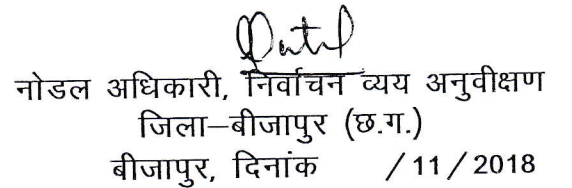 नोडल अधिकारी, निर्वाचन व्यय अनुवीक्षण
जिला–बीजापुर (छ.ग.)
बीजापुर, दिनांक /11/2018